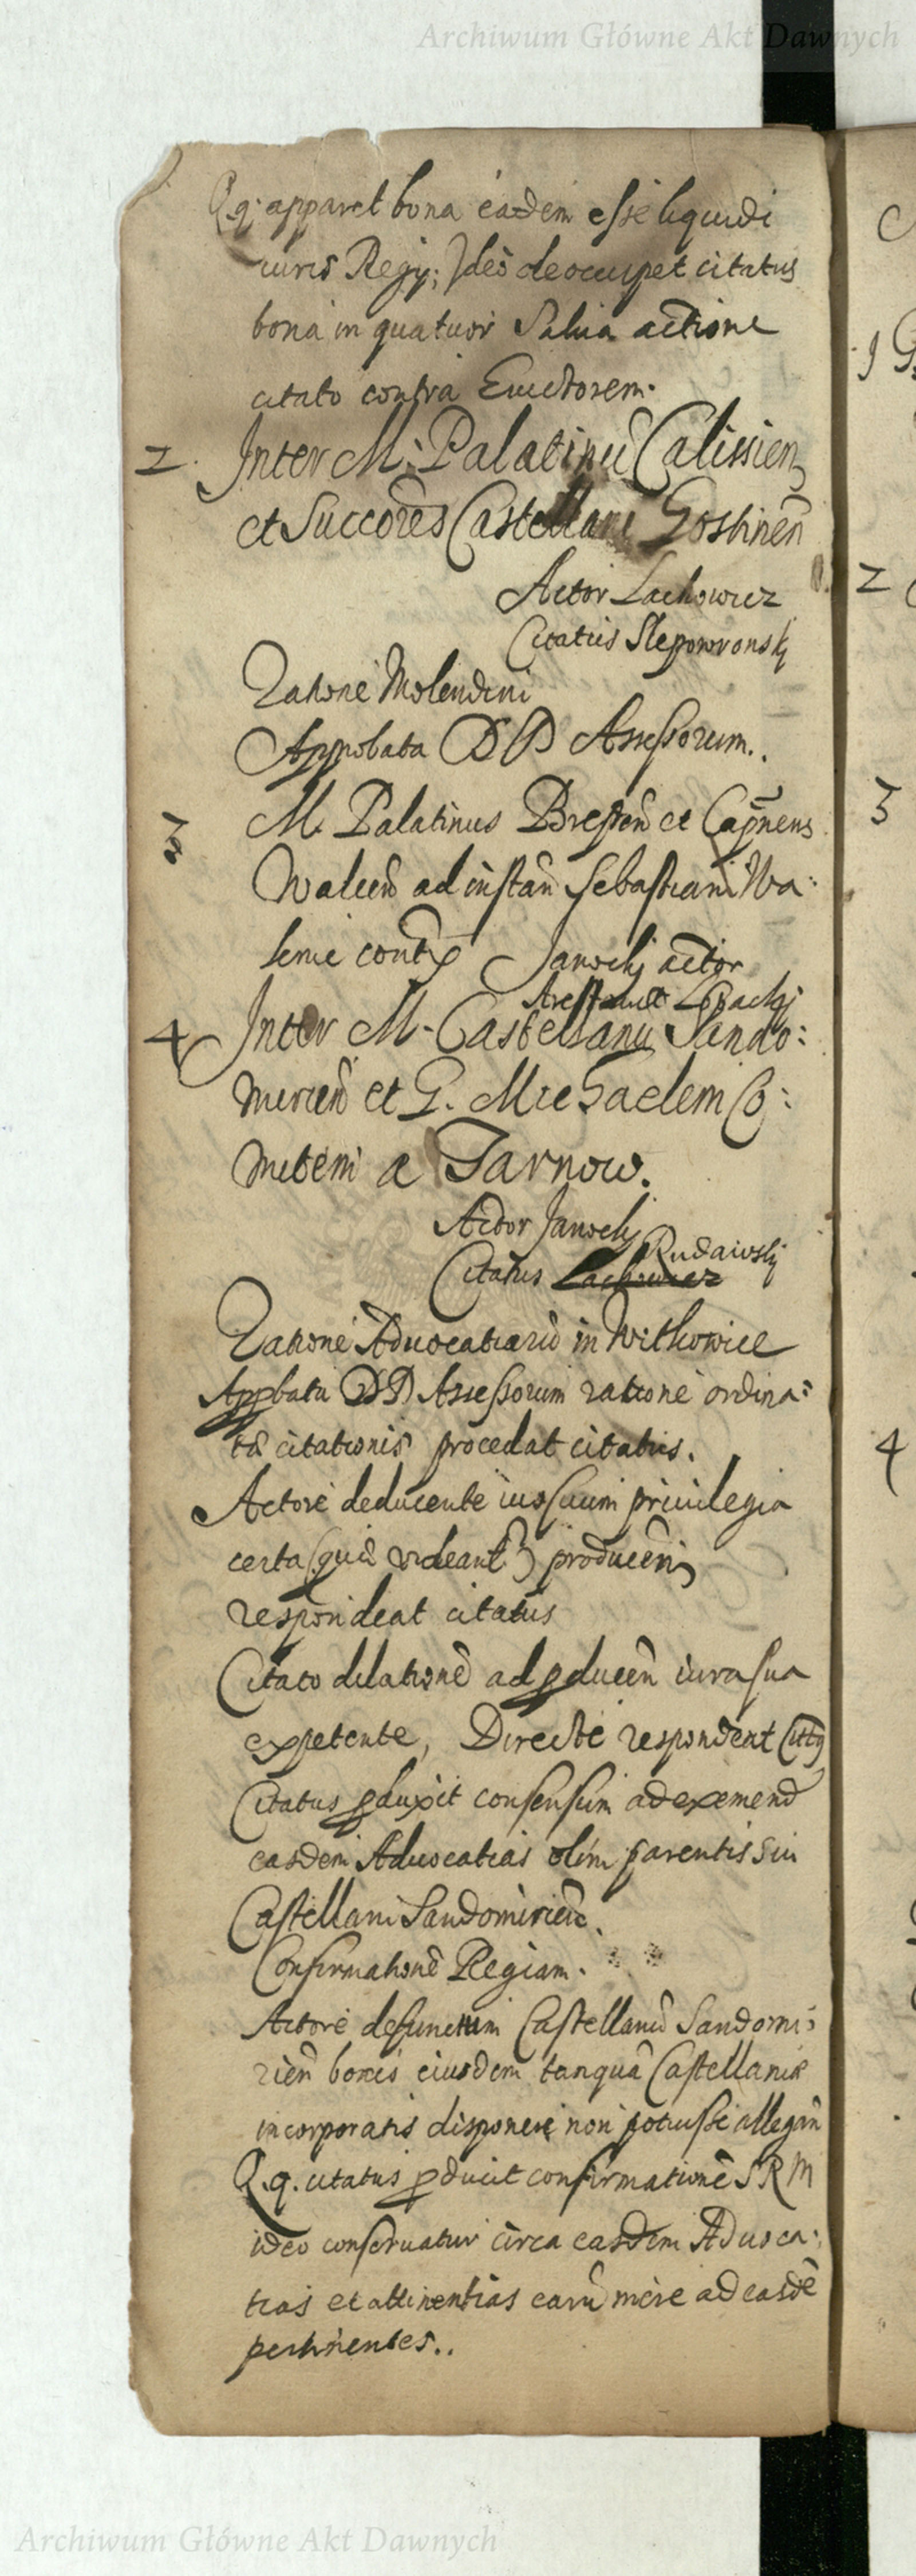 Archiwum Główne Akt Dawnych
Q. q. apparet bona eadem esse liquidi
iuris Regij; Ideo deoccupet citatus
bona in quatuor Salua actione
citato contra Euictorem.
2. Inter M. Palatinū Calissien
et Succores̄ Castellani Gostinen̄
Actor Lachowicz
Citatus Slepowronskj
Ratione Molendini
Approbata DD Assessorum..
3 M. Palatinus Bresten̄ et Capn̄eus
Walcen̄ ad instan̄ Sebastiani Wa:
Janockj actor
4 Inter M. Castellanū Sando:
mirien̄ et G. Michaelem Co:
mitem a Tarnow.
Actor Janockj
Rudawskj
Citatus Lachowicz
Ratione Aduocatiarū in Witkowice
Appbata DD Assessorum ratione ordina:
tæ citationis procedat citatus.
Actore deducente ius suum priuilegia
certa (quæ videant) producen̄
respondeat citatus
Citato dilationē ad pducen̄ iura sua
expetente, Directe respondeat Cittus
Citatus pduxit consensum ad exemend̄
easdem Aduocatias olim parentis sui
Castellani Sandomirien̄.
Confirmationē Regiam.
Actore defunctum Castellanū Sandomi:
rien̄ bonis eiusdem tanquā Castellaniæ
incorporatis disponere non potuisse allegan̄
Q. q. citatus pducit confirmationē S R M
ideo conseruatur circa easdem Aduoca:
tias et attinentias earū mere ad easdē
pertinentes..
2
3
4
Archiwum Główne Akt Dawnych